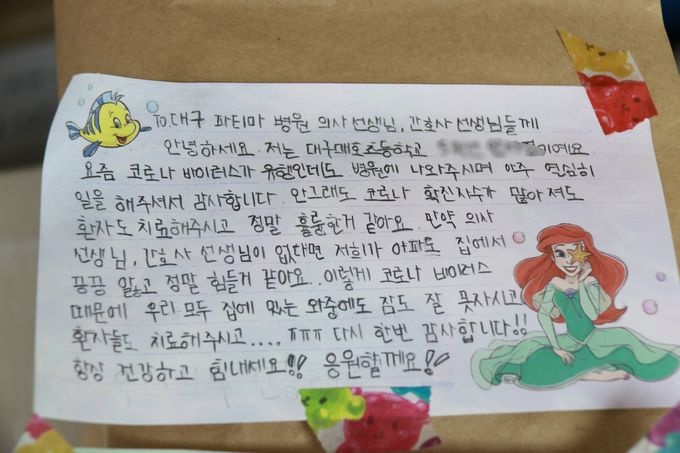 To대구 파티마 병원 의사선생님, 간호사 선생님들께
안녕하세요. 저는 대구매호초등학교 이에요.
요즘 코로나 바이러스가 유행인데도 병원에 나와주시며 아주 열심히
일을 해주셔서 감사합니다. 안그래도 코로나 확진자수가 많아져도
환자도 치료해주시고 정말 훌륭한거 같아요. 만약 의사
선생님, 간호사 선생님이 없다면 저희가 아파도 집에서
끙끙 앓고 정말 힘들거 같아요.. 이렇게 코로나 바이러스
때문에 우리 모두 집에 있는 와중에도 잠도 잘 못자시고
환자들도 치료해주시고.... ㅠㅠㅠ 다시 한번 감사합니다!!
항상 건강하고 힘내세요!! 응원할께요!!